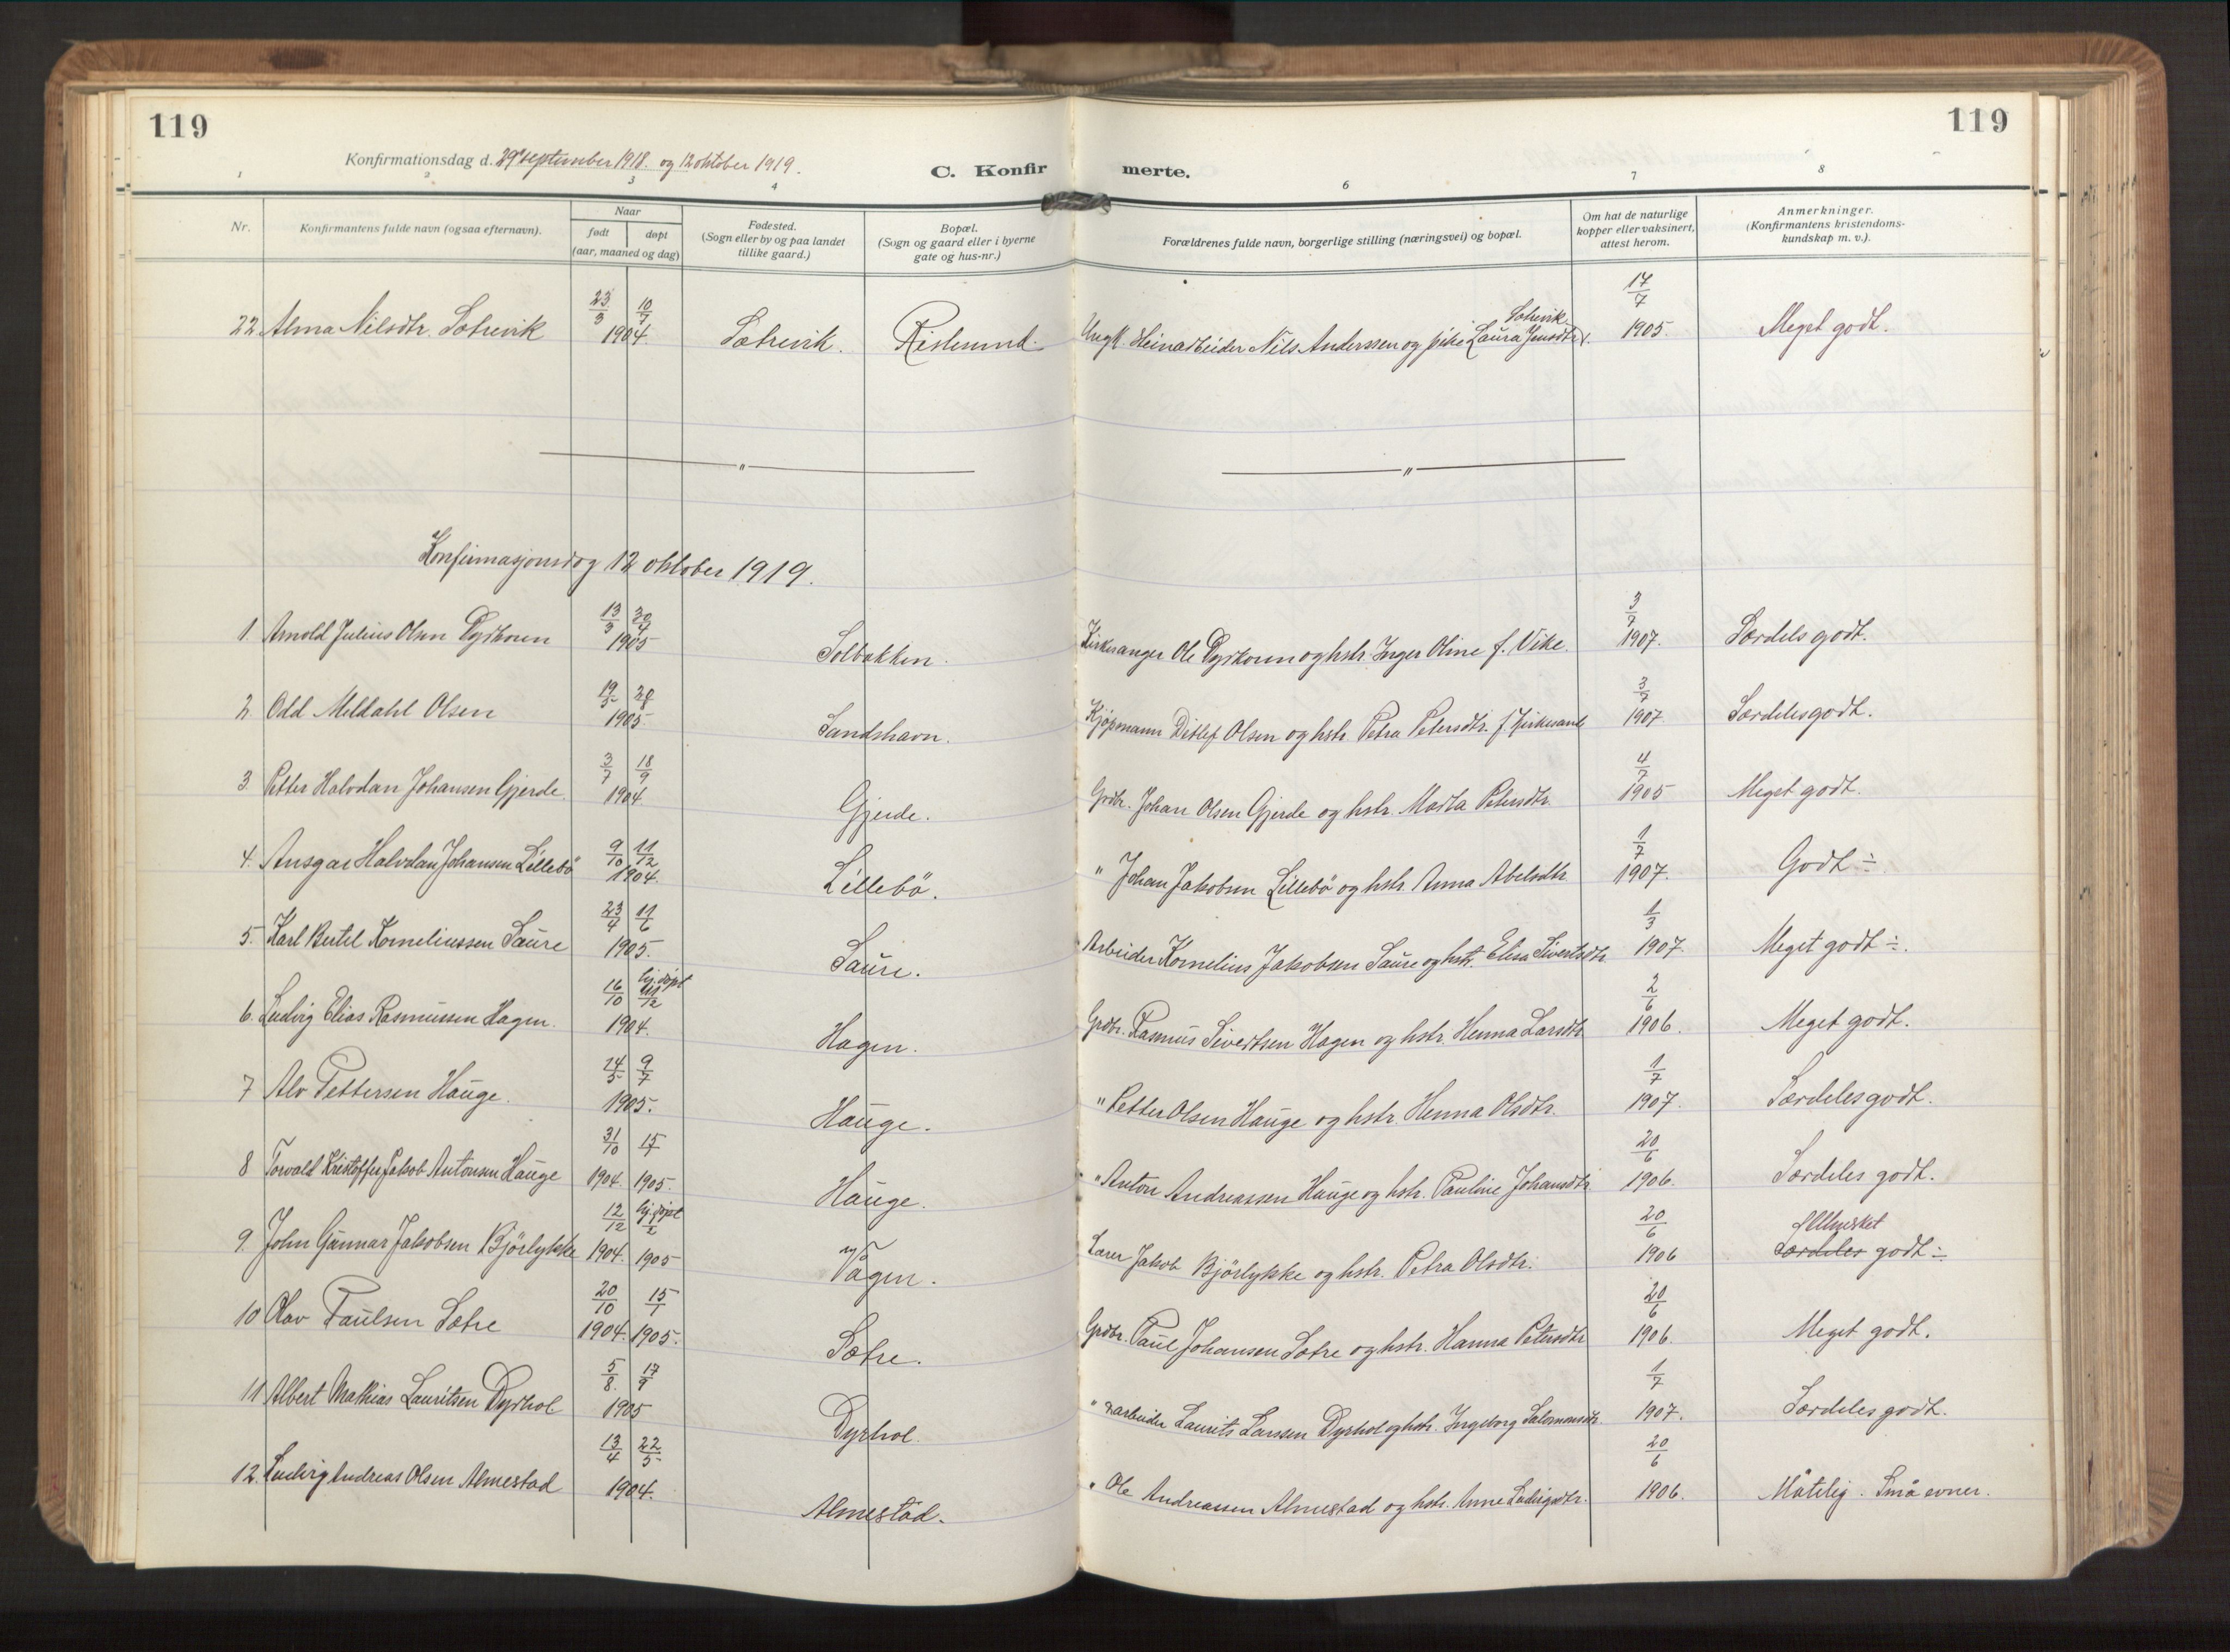 119
119
Konfirmationsdag d. 29 september 1918. og 12 oktober 1919.
C. Konfir
merte.
1 2 3 4 6 7 8
Nr.
Konfirmantens fulde navn (ogsaa efternavn).
Naar
født døpt
(aar, maaned og dag)
Fødested.
(Sogn eller by og paa landet
tillike gaard.)
Bopæl.
(Sogn og gaard eller i byerne
gate og hus-nr.)
Forældrenes fulde navn, borgerlige stilling (næringsvei) og bopæl.
Om hat de naturlige
kopper eller vaksinert,
attest herom.
Anmerkninger.
(Konfirmantens kristendoms-
kundskap m. v.).
22. Alma Nilsdtr. Sætrevik 23/3 10/7 1904. Sætrevik. Ristesund. Ungk. Steinarbeider Nils Anderssen og pike Laura Jensdtr. Sætrevik. 17/7 1905. Meget godt.
"
"
Konfirmasjonsdag 12 oktober 1919.
1. Arnold Julius Olsen Dyrkoren 13/3 30/4 1905 Solbakken. Kirkesanger Ole Dyrkoren og hstr. Inger Oline f. Vike. 3/7 1907. Særdeles godt.
2. Odd Meldahl Olsen 19/5 20/8 1905. Sandshavn. Kjöpmann Ditlef Olsen og hstr. Petra Petersdtr. 3/7 1907 Særdeles godt.
3. Petter Halvdan Johansen Gjerde. 3/7 18/9 1904. Gjerde. Grdbr. Johan Olsen Gjerde og hstr. Marta Petersdtr. 4/7 1905 Meget godt.
4. Ansgar Halvdan Johansen Lillebö 9/10 11/12 1904. Lillebö. " Johan Jakobsen Lillebö og hstr. Anna Abelsdtr. 1/7 1907. Godt ÷
5. Karl Bertel Korneliussen Saure 23/4 11/6 1905. Saure. Arbeider Kornelius Jakobsen Saure og hstr. Elisa Sivertsdtr. 1/3 1907. Meget godt ÷.
6. Ludvig Elias Rasmussen Hagen. 16/10 hj.döpt 11/12 1904. Hagen. Grdbr. Rasmus Sivertsen Hagen og hstr. Henna Larsdtr. 2/6 1906. Meget godt.
7 Alv Pettersen Hauge. 14/5 9/7 1905. Hauge. " Petter Olsen Hauge og hstr. Henna Olsdtr. 1/7 1907. Særdeles godt.
8 Torvald Kristoffer Jakob Antonsen Hauge 31/10 1904. 15/1 1905. Hauge. " Anton Andreassen Hauge og hstr. Pauline Johansdtr. 20/6 1906. Særdeles godt.
9. John Gunnar Jakobsen Bjørlykke 12/12 1904. hj.döpt 1905 Vågen. Lærer Jakob Bjørlykke og hstr. Petra Olsdtr. 20/6 1906 Utmerket Særdeles godt ÷
10 Olav Paulsen Sætre 20/10 1904. 15/1 1905. Sætre. Grdbr. Paul Johansen Sætre og hstr. Hanna Petersdtr. 20/6 1906. Meget godt.
11 Albert Mathias Lauritsen Dyrhol 5/8. 17/9 1905 Dyrhol. " arbeider Laurits Larssen Dyrhol og hstr. Ingeborg Salomonsdtr. 1/7 1907. Særdeles godt.
12. Ludvig Andreas Olsen Almestad 13/4 22/5 1904. Almestad. " Ole Andreassen Almestad og hstr. Anne Ludvigsdtr. 20/6 1906. Måtelig. Små evner.